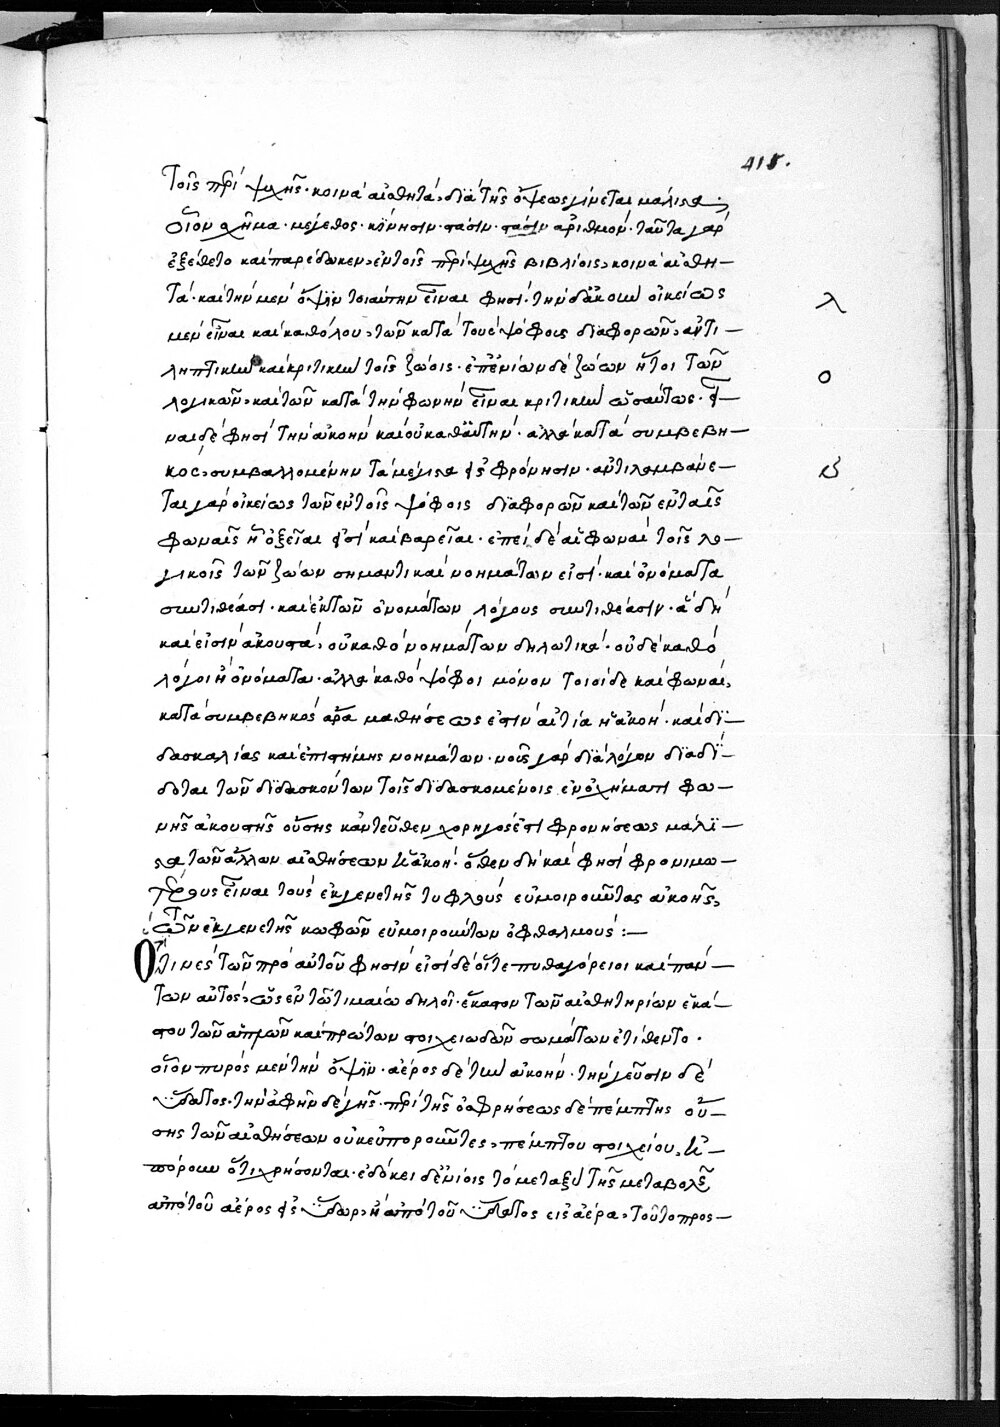 415.
τοῖς περὶ ψυχῆς· κοινὰ αἰσθητὰ, διὰ τῆς ὄψεως γίνεται μάλιστα·
οἷον σχῆμα· μέγεθος· κίνησιν· στάσιν· στάσιν ἀριθμόν· ταῦτα γὰρ
ἐξέθετο καὶ παρέδωκεν, ἐν τοῖς περὶ ψυχῆς βιβλίοις, κοινὰ αἰσθη–
τά· καὶ τὴν μὲν ὄψιν τοιαύτην εἶναι φησί· τὴν δ' ἀκοὴν οἰκείως
μὲν εἶναι καὶ καθόλου, τῶν κατὰ τοὺς ψόφους διαφορῶν, ἀντι–
ληπτικὴν καὶ κριτικὴν τοῖς ζώοις· ἐπ' ἐνίων δὲ ζώων ἤτοι τῶν
λογικῶν, καὶ τῶν κατὰ τὴν φωνὴν εἶναι κριτικὴν ὡσαύτως· εἶ–
ναι δέ φησι τὴν ἀκοὴν καὶ οὐ καθ' αὑτὴν· ἀλλὰ κατὰ συμβεβη–
κὸς, συμβαλλομένην τὰ μέγιστα εἰς φρόνησιν· ἀντιλαμβάνε–
ται γὰρ οἰκείως τῶν ἐν τοῖς ψόφοις διαφορῶν καὶ τῶν ἐν ταῖς
φωναῖς ἢ ὀξεῖαι εἰσὶ καὶ βαρεῖαι· ἐπεὶ δὲ αἱ φωναὶ τοῖς λο–
γικοῖς τῶν ζώων σημαντικαὶ νοημάτων εἰσί· καὶ ὀνόματα
συντιθέασι· καὶ ἐκ τῶν ὀνομάτων λόγους συντιθέασιν· ἃ δὴ
καὶ εἰσὶν ἀκουστὰ, οὐ καθὸ νοημάτων δηλωτικά· οὐδὲ καθὸ
λόγοι ἢ ὀνόματα· ἀλλὰ καθὸ ψόφοι μόνον τοιοίδε καὶ φωναὶ,
κατὰ συμβεβηκὸς ἄρα μαθήσεως ἐστὶν αἰτία ἡ ἀκοή· καὶ δι–
δασκαλίας καὶ ἐπιστήμης νοημάτων· νοῦς γὰρ διὰ λόγου διαδί–
δοται τῶν διδασκόντων τοῖς διδασκομένοις ἐν ὀχήματι φω–
νῆς ἀκουστῆς οὔσης κἀντεῦθεν χορηγός ἐστι φρονήσεως μάλι–
στα τῶν ἄλλων αἰσθήσεων ἡ ἀκοή· ὅθεν δὴ καί φησι φρονιμω–
τέρους εἶναι τοὺς ἐκ γενετῆς τυφλοὺς εὐμοιροῦντας ἀκοῆς,
τῶν ἐκ γενετῆς κωφῶν εὐμοιρούντων ὀφθαλμούς :–
Οτινὲς τῶν πρὸ αὐτοῦ φησὶν εἰσὶ δὲ οἵ τε πυθαγόρειοι καὶ πλάτων αὐτὸς, ὡς ἐν τῷ τιμαίῳ δηλοῖ· ἕκαστον τῶν αἰσθητηρίων ἑκά–
στου τῶν ἁπλῶν καὶ πρώτων στοιχειωδῶν σωμάτων ἐτίθεντο·
οἷον πυρὸς μὲν τὴν ὄψιν· ἀέρος δὲ τὴν ἀκοήν· τὴν γεῦσιν δὲ
ὕδατος· τὴν ἁφὴν δὲ γῆς· περὶ τῆς ὀσφρήσεως δὲ πέμπτης οὔ–
σης τῶν αἰσθήσεων οὐκ εὐποροῦντες, πέμπτου στοιχείου, ἠ–
πόρουν ὅτι χρήσονται· ἐδόκει δ' ἐνίοις τὸ μεταξὺ τῆς μεταβολῆς
ἀπὸ τοῦ ἀέρος εἰς ὕδωρ, ἢ ἀπὸ τοῦ ὕδατος εἰς ἀέρα, τοῦτο προς–